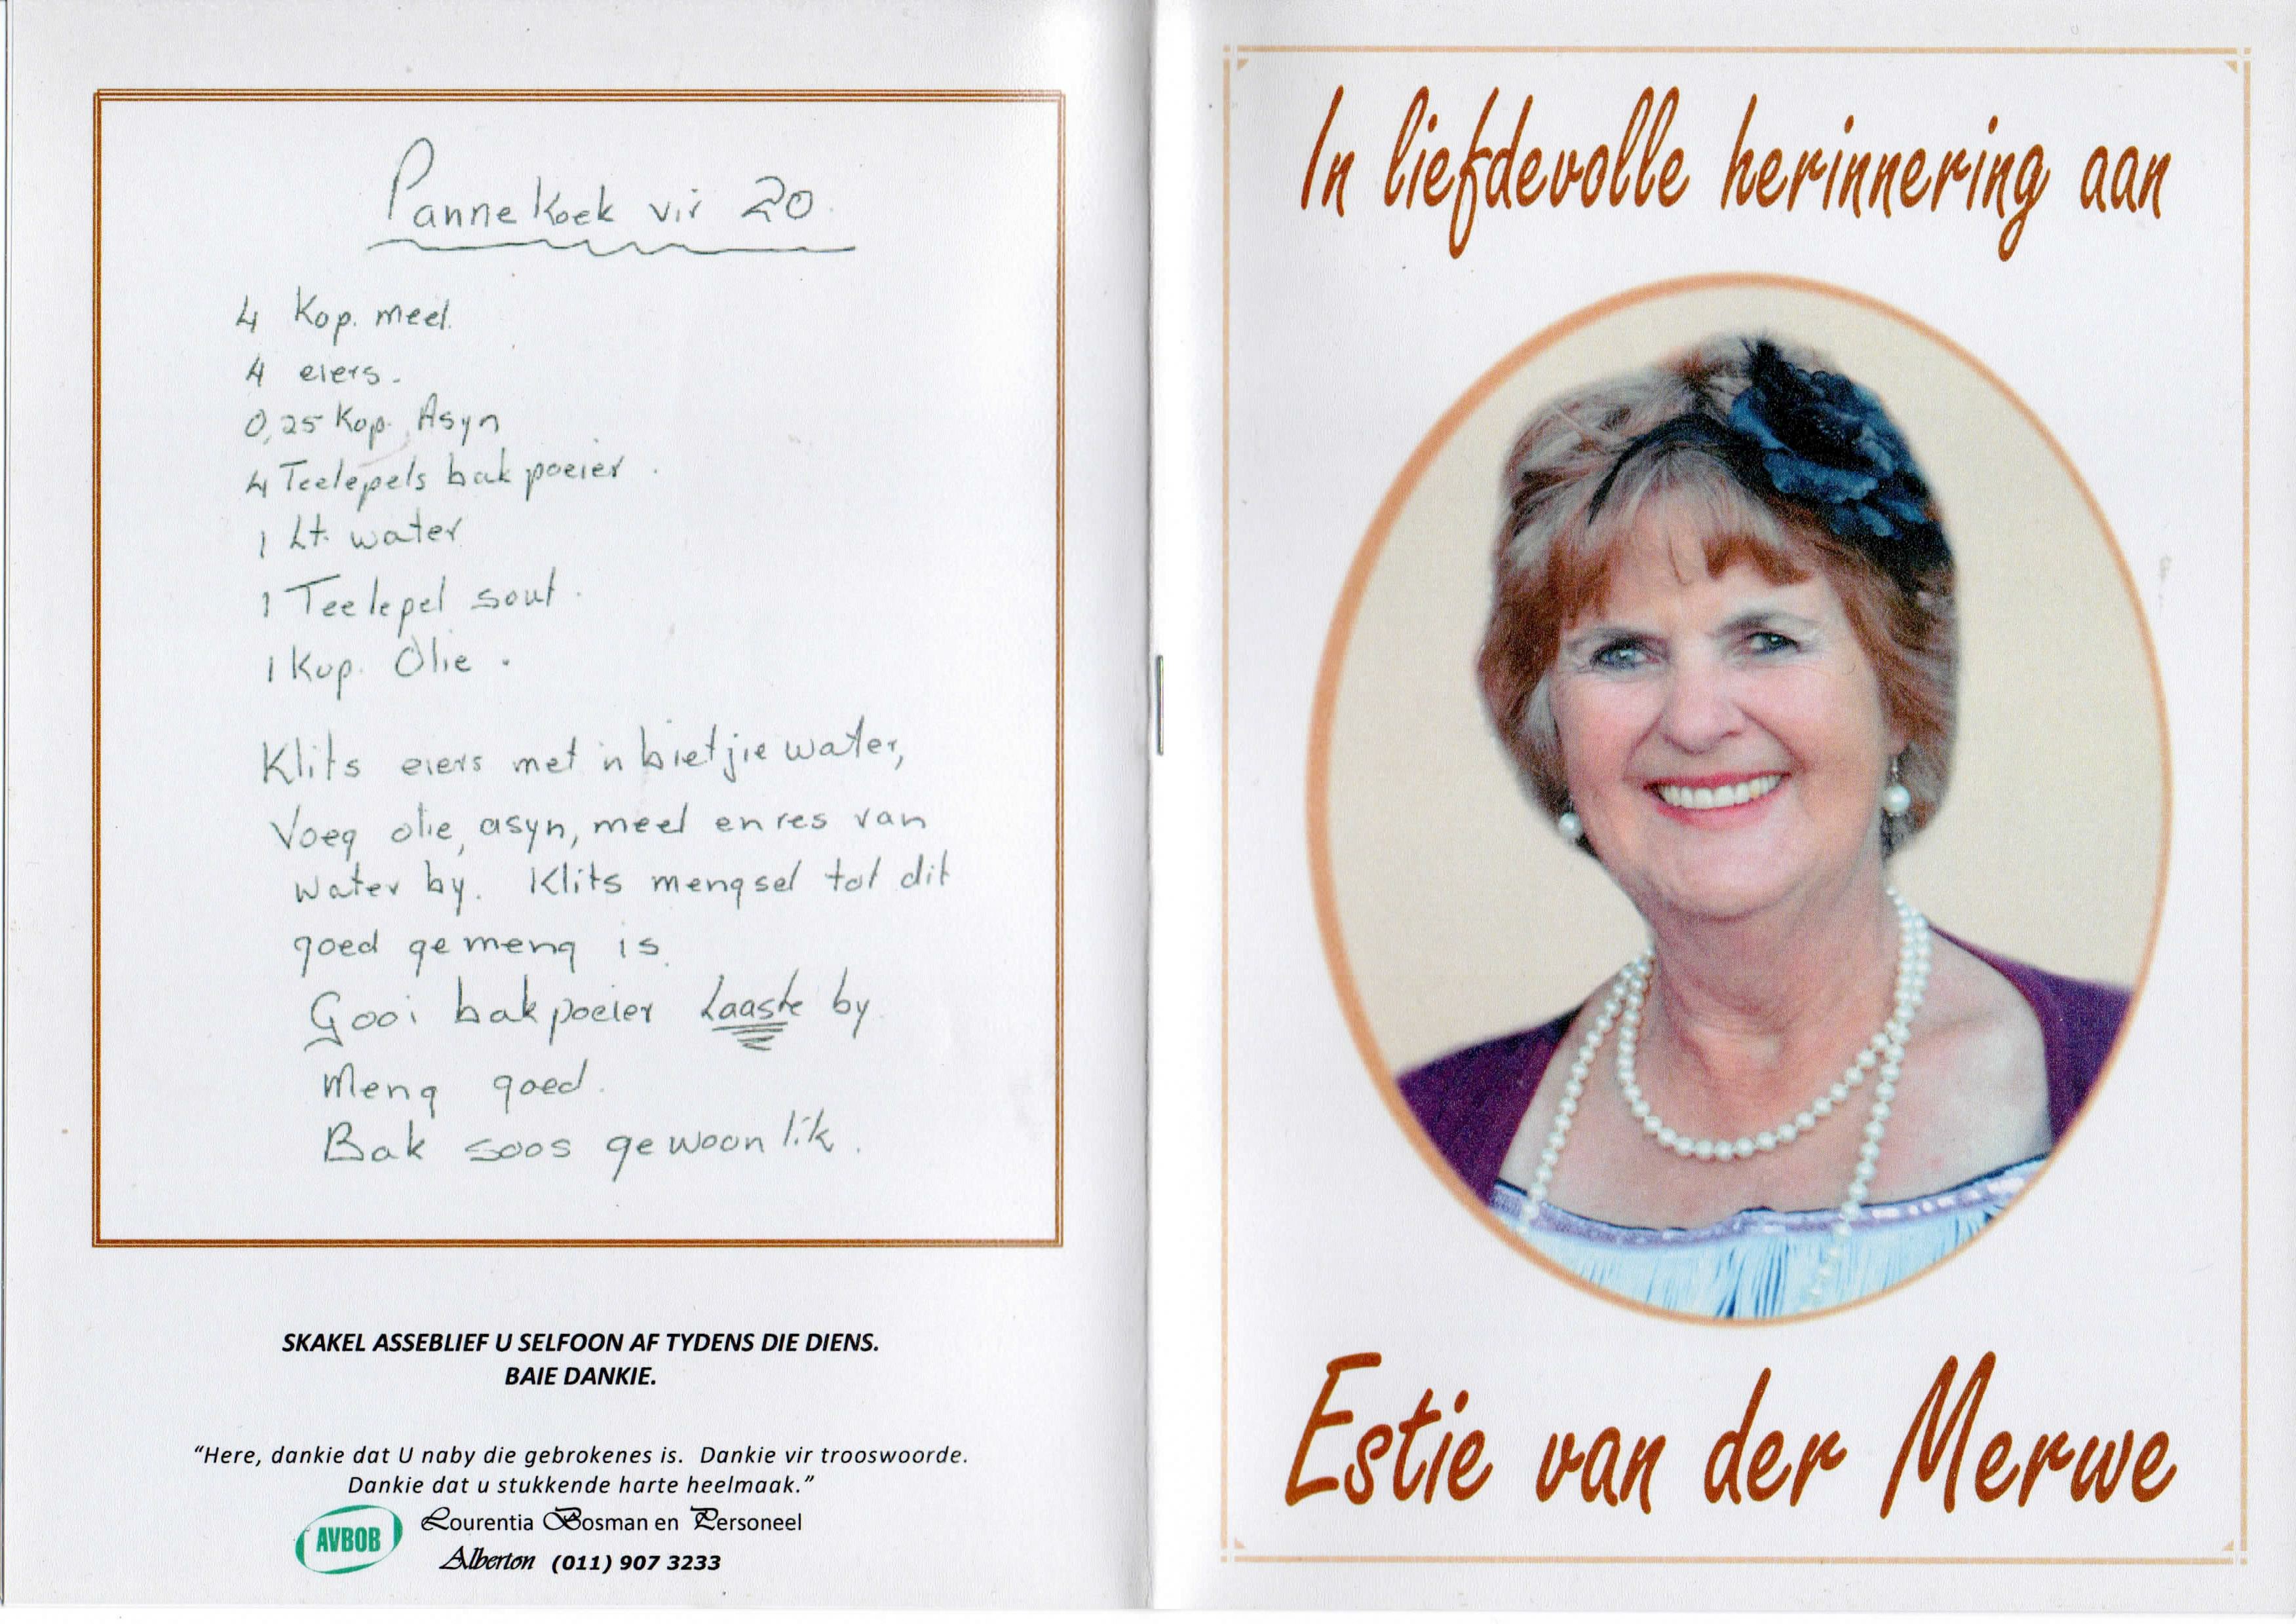 Pannekoek vir 20.
4 Kop. meel.
4 eiers.
0,25 Kop. Asyn
4 Teelepels bakpoeier.
1 Lt. water
1 Teelepel sout.
1 Kop. Olie.
Klits eiers met 'n bietjie water,
Voeg olie, asyn, meel en res van
water by. Klits mengsel tot dit
goed gemeng is.
Gooi bakpoeier Laaste by.
Meng goed.
Bak soos gewoonlik.
SKAKEL ASSEBLIEF U SELFOON AF TYDENS DIE DIENS.
BAIE DANKIE.
“Here, dankie dat U naby die gebrokenes is. Dankie vir trooswoorde.
Dankie dat u stukkende harte heelmaak.”
AVBOB
Lourentia Bosman en Personeel
Alberton (011) 907 3233
In liefdevolle herinnering aan
Estie van der Merwe